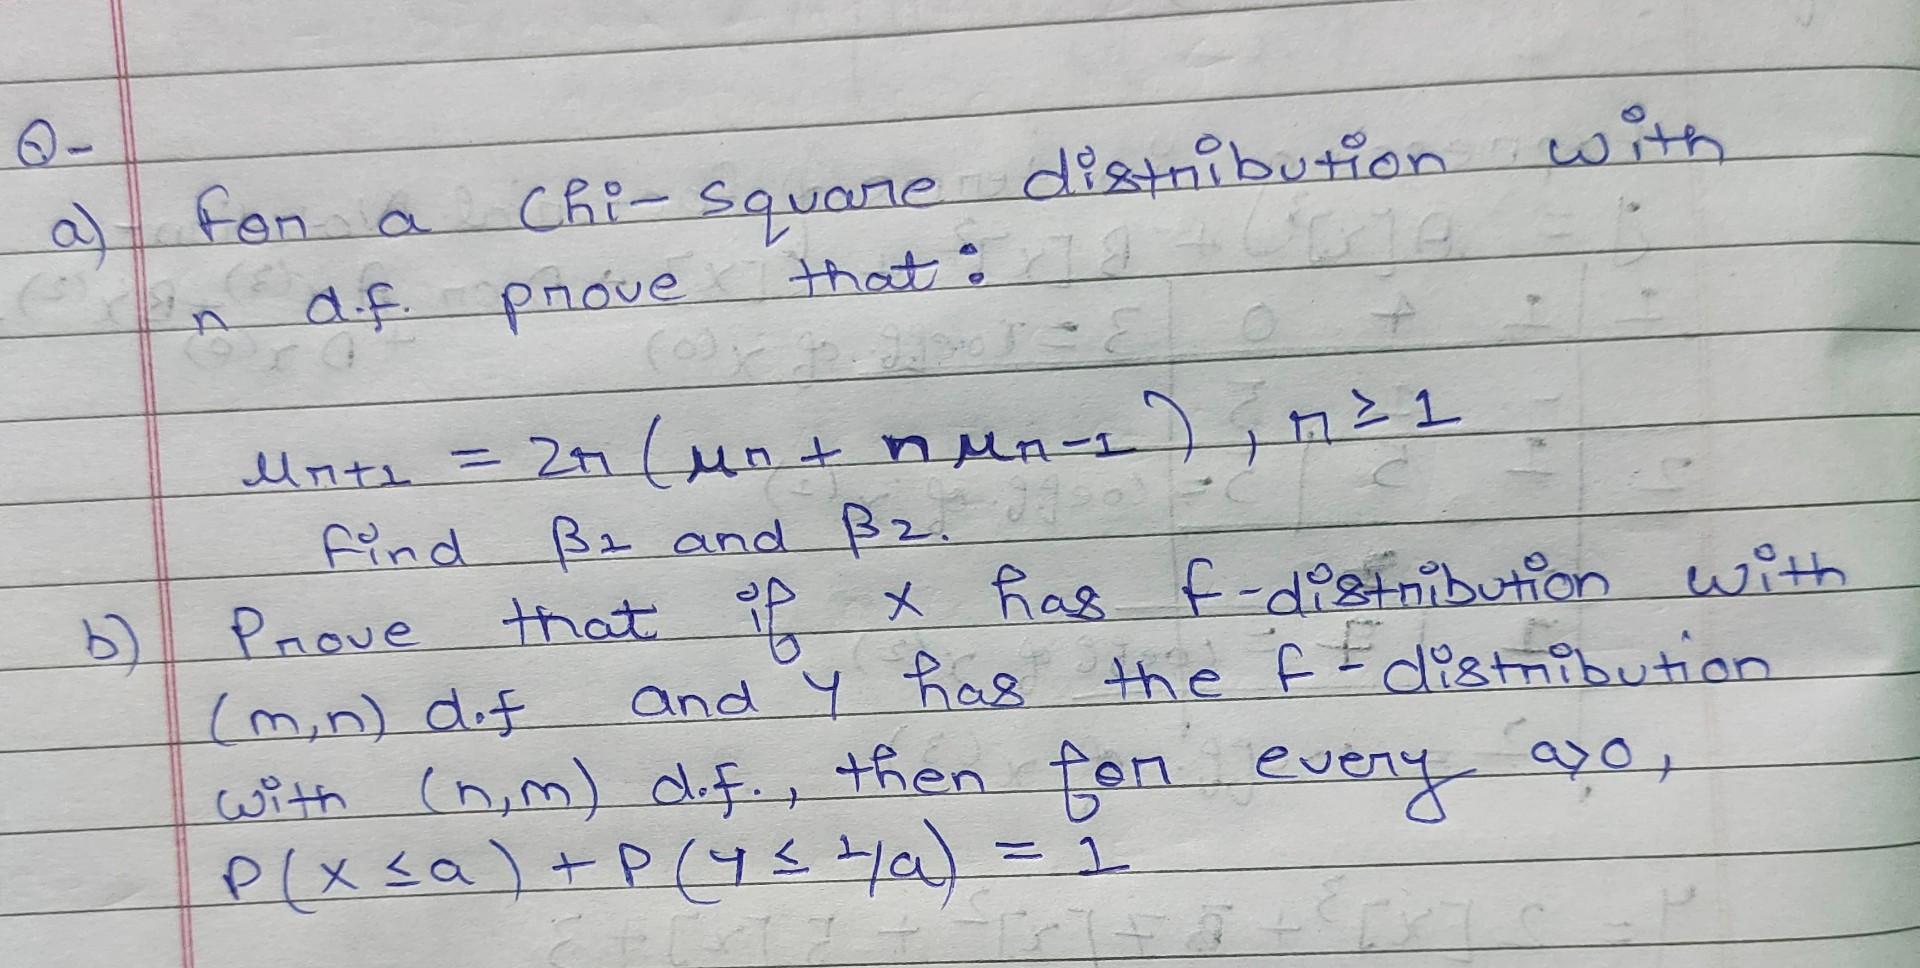 Q-
a) For a Chi-square distribution with
n d.f. prove that:
μr+1 = 2r (μr + n μr-1), r ≥ 1
find β1 and β2.
b) Prove that if X has f-distribution with
(m,n) d.f and Y has the f-distribution
with (n,m) d.f., then for every a>0,
P(X ≤ a) + P(Y ≤ 1/a) = 1